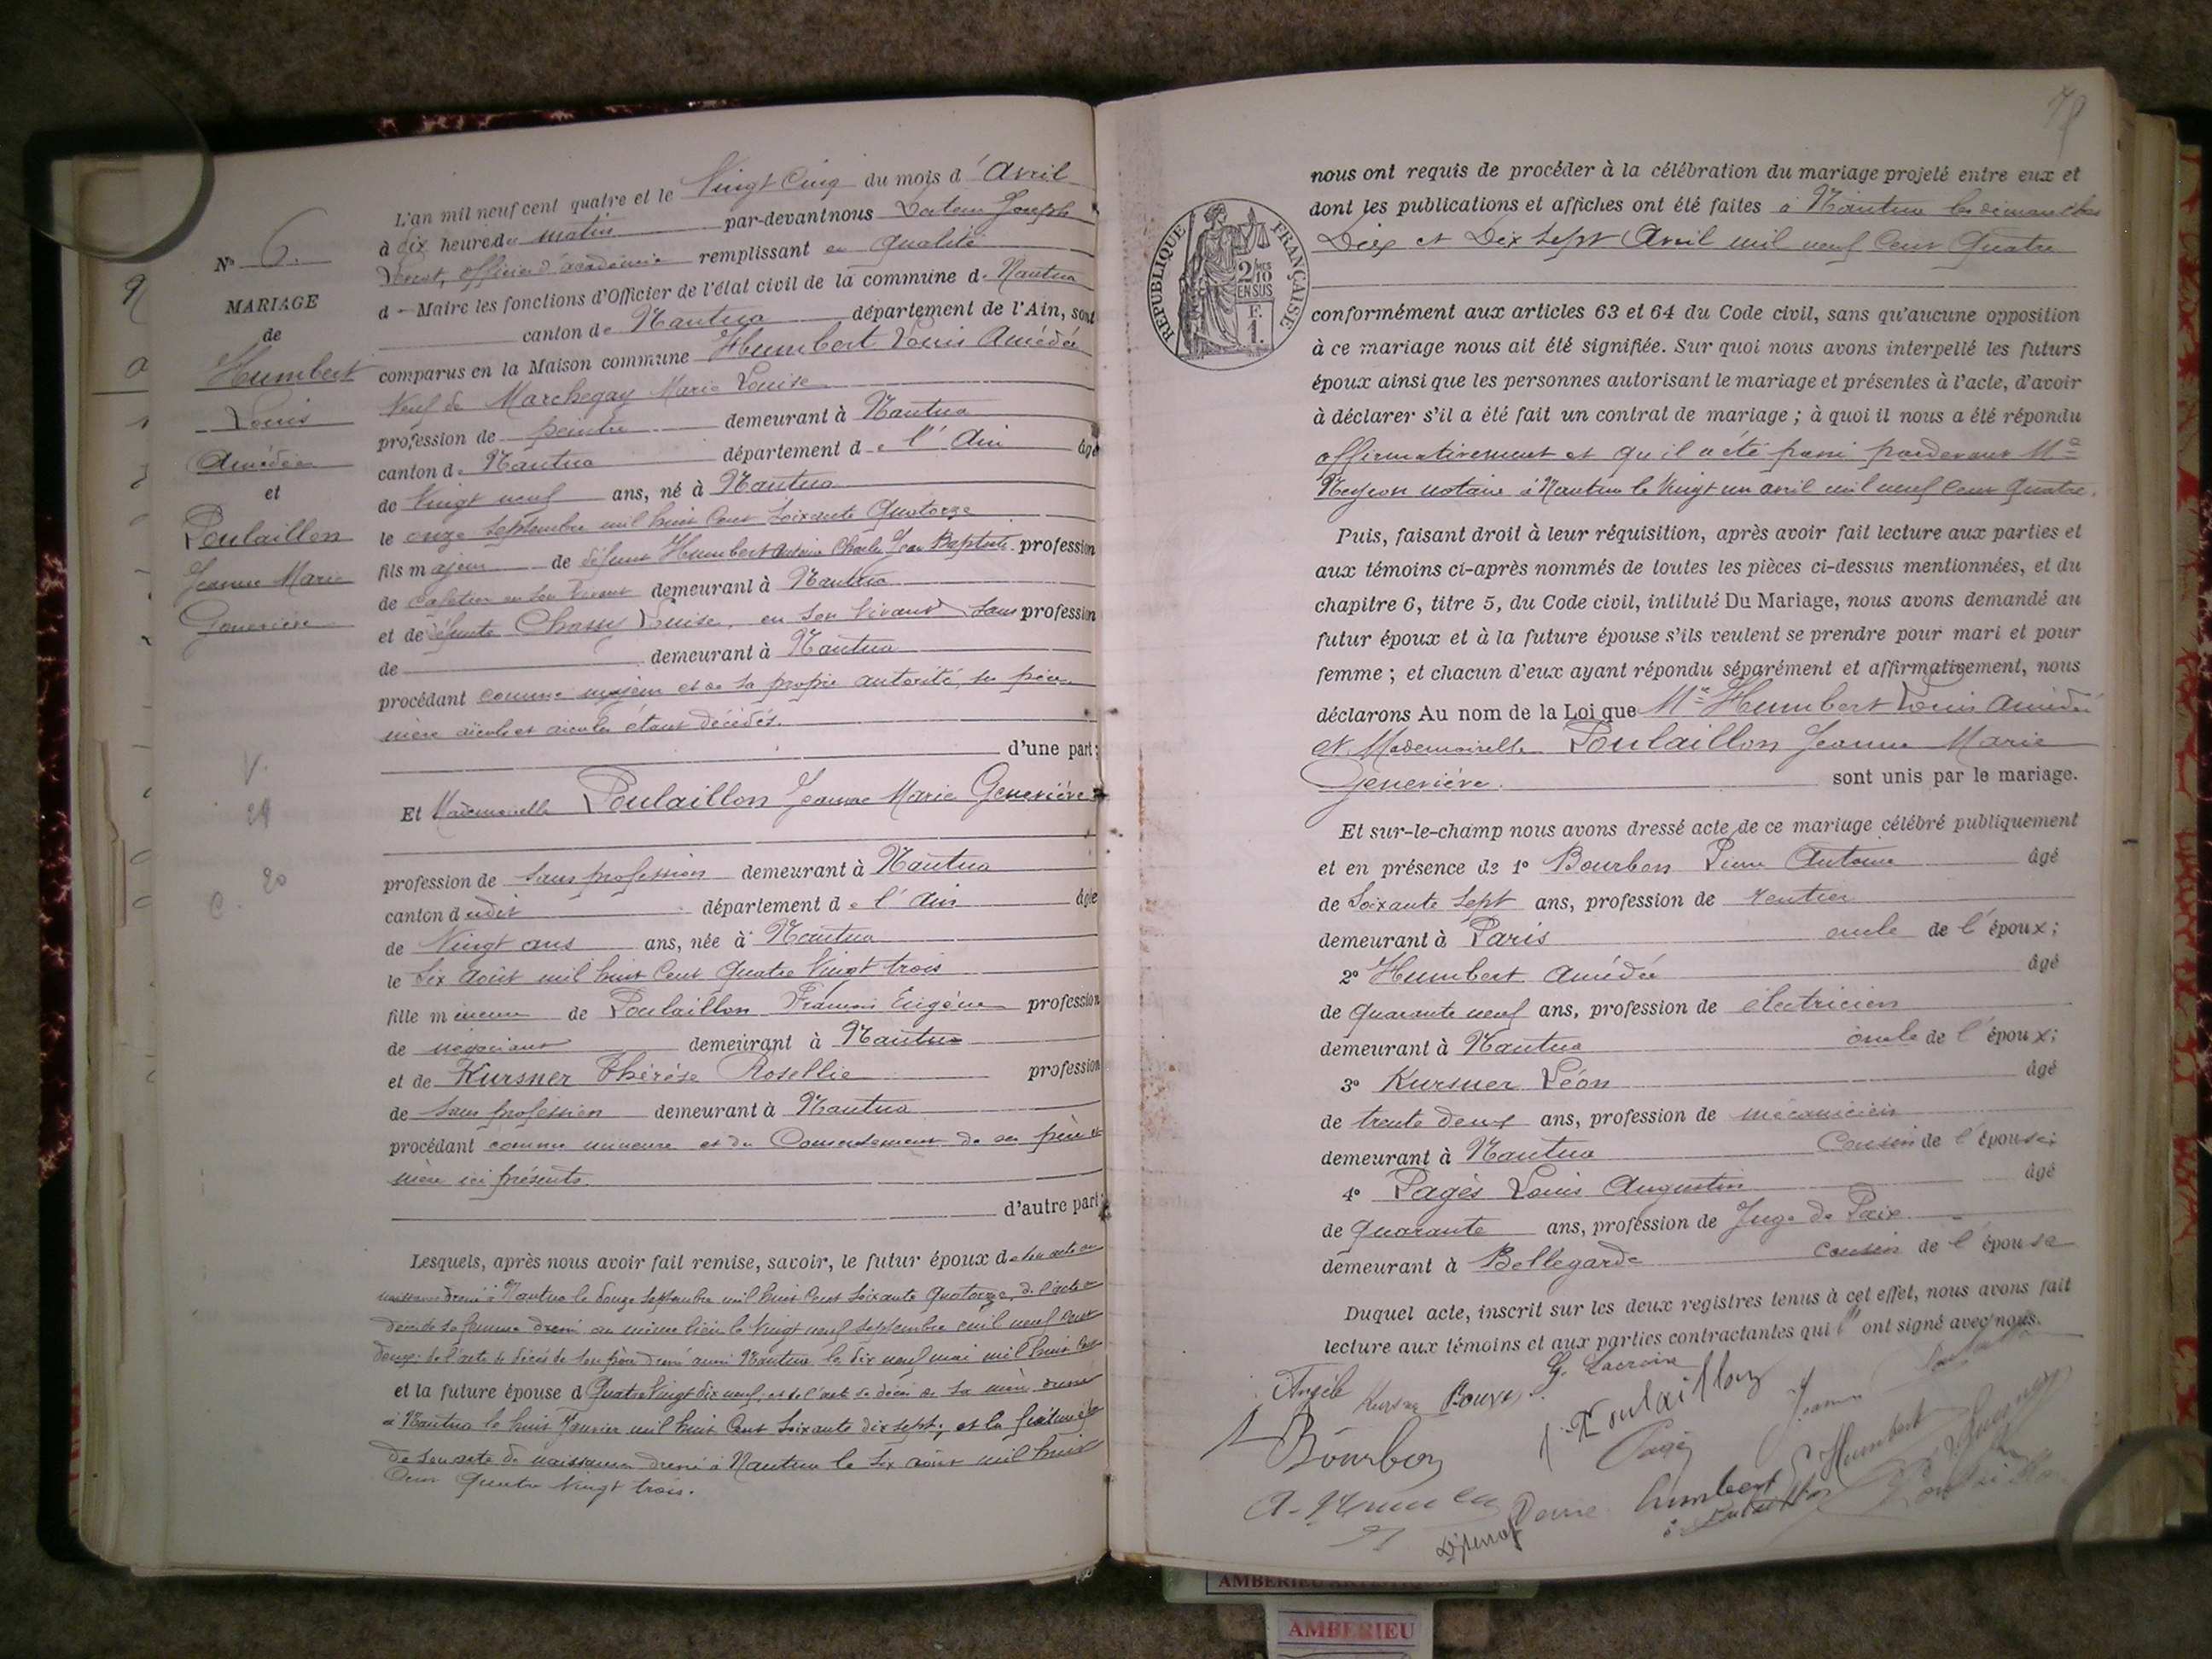 N° 6.
MARIAGE
de
Humbert
Louis
Amédée
et
Poulaillon
Jeanne Marie
Geneviève
L'an mil neuf cent quatre et le Vingt Cinq du mois d'Avril
à dix heure du matin par-devant nous Docteur Joseph
officier d'académie remplissant en qualité
d Maire les fonctions d'Officier de l'état civil de la commune de Nantua
canton de Nantua département de l'Ain, sont
comparus en la Maison commune Humbert Louis Amédée
Veuf de Marchegay Marie Louise
profession de peintre demeurant à Nantua
canton de Nantua département de l'Ain âgé
de Vingt neuf ans, né à Nantua
le onze Septembre mil huit Cent Soixante Quatorze
fils majeur de défunt Humbert Antoine Charles Jean Baptiste profession
de cafetier en son vivant demeurant à Nantua
et de défunte Chassy Louise, en son vivant Sans profession
de demeurant à Nantua
procédant comme majeur et de sa propre autorité, ses père
mère aïeuls et aïeules étant décédés.
d'une part;
Et Mademoiselle Poulaillon Jeanne Marie Geneviève
profession de Sans profession demeurant à Nantua
canton dudit département de l'Ain âgée
de Vingt ans ans, née à Nantua
le Six Août mil huit Cent Quatre Vingt trois
fille mineure de Poulaillon François Eugène profession
de négociant demeurant à Nantua
et de Kursner Thérèse Rosellie profession
de Sans profession demeurant à Nantua
procédant comme mineure et du Consentement de ses père et
mère ici présents.
d'autre part;
Lesquels, après nous avoir fait remise, savoir, le futur époux de son acte de
naissance dressé à Nantua le douze Septembre mil huit Cent Soixante Quatorze, de l'acte de
décès de sa femme dressé au même lieu le Vingt neuf septembre mil neuf Cent
deux; de l'acte de décès de son père dressé aussi Nantua le dix neuf mai mil huit Cent
et la future épouse d Quatre Vingt dix neuf, et de l'acte de décès de sa mère dressé
à Nantua le huit Janvier mil huit Cent Soixante dix sept; et la future
de son acte de naissance dressé à Nantua le Six août mil huit
Cent Quatre Vingt trois.
nous ont requis de procéder à la célébration du mariage projeté entre eux et
dont les publications et affiches ont été faites à Nantua les dimanches
Dix et Dix Sept Avril mil neuf Cent Quatre
RÉPUBLIQUE FRANÇAISE
2/10 EN SUS
F. 1.
conformément aux articles 63 et 64 du Code civil, sans qu'aucune opposition
à ce mariage nous ait été signifiée. Sur quoi nous avons interpellé les futurs
époux ainsi que les personnes autorisant le mariage et présentes à l'acte, d'avoir
à déclarer s'il a été fait un contrat de mariage ; à quoi il nous a été répondu
affirmativement et qu'il a été passé pardevant Me
notaire à Nantua le Vingt un avril mil neuf Cent Quatre.
Puis, faisant droit à leur réquisition, après avoir fait lecture aux parties et
aux témoins ci-après nommés de toutes les pièces ci-dessus mentionnées, et du
chapitre 6, titre 5, du Code civil, intitulé Du Mariage, nous avons demandé au
futur époux et à la future épouse s'ils veulent se prendre pour mari et pour
femme ; et chacun d'eux ayant répondu séparément et affirmativement, nous
déclarons Au nom de la Loi que Mr Humbert Louis Amédée
et Mademoiselle Poulaillon Jeanne Marie
Geneviève. sont unis par le mariage.
Et sur-le-champ nous avons dressé acte de ce mariage célébré publiquement
et en présence de 1° Bourbon Pierre Antoine âgé
de Soixante Sept ans, profession de rentier
demeurant à Paris oncle de l'époux;
2° Humbert Amédée âgé
de Quarante neuf ans, profession de électricien
demeurant à Nantua oncle de l'époux;
3° Kursner Léon âgé
de trente deux ans, profession de mécanicien
demeurant à Nantua Cousin de l'épouse;
4° Pagès Louis Augustin âgé
de Quarante ans, profession de Juge de Paix
demeurant à Bellegarde cousin de l'épouse
Duquel acte, inscrit sur les deux registres tenus à cet effet, nous avons fait
lecture aux témoins et aux parties contractantes qui ont signé avec nous.
Angèle Kursner G. Lacroix
Poulaillon Jeanne
Bourbon Pagès Humbert
Humbert
AMBERIEU